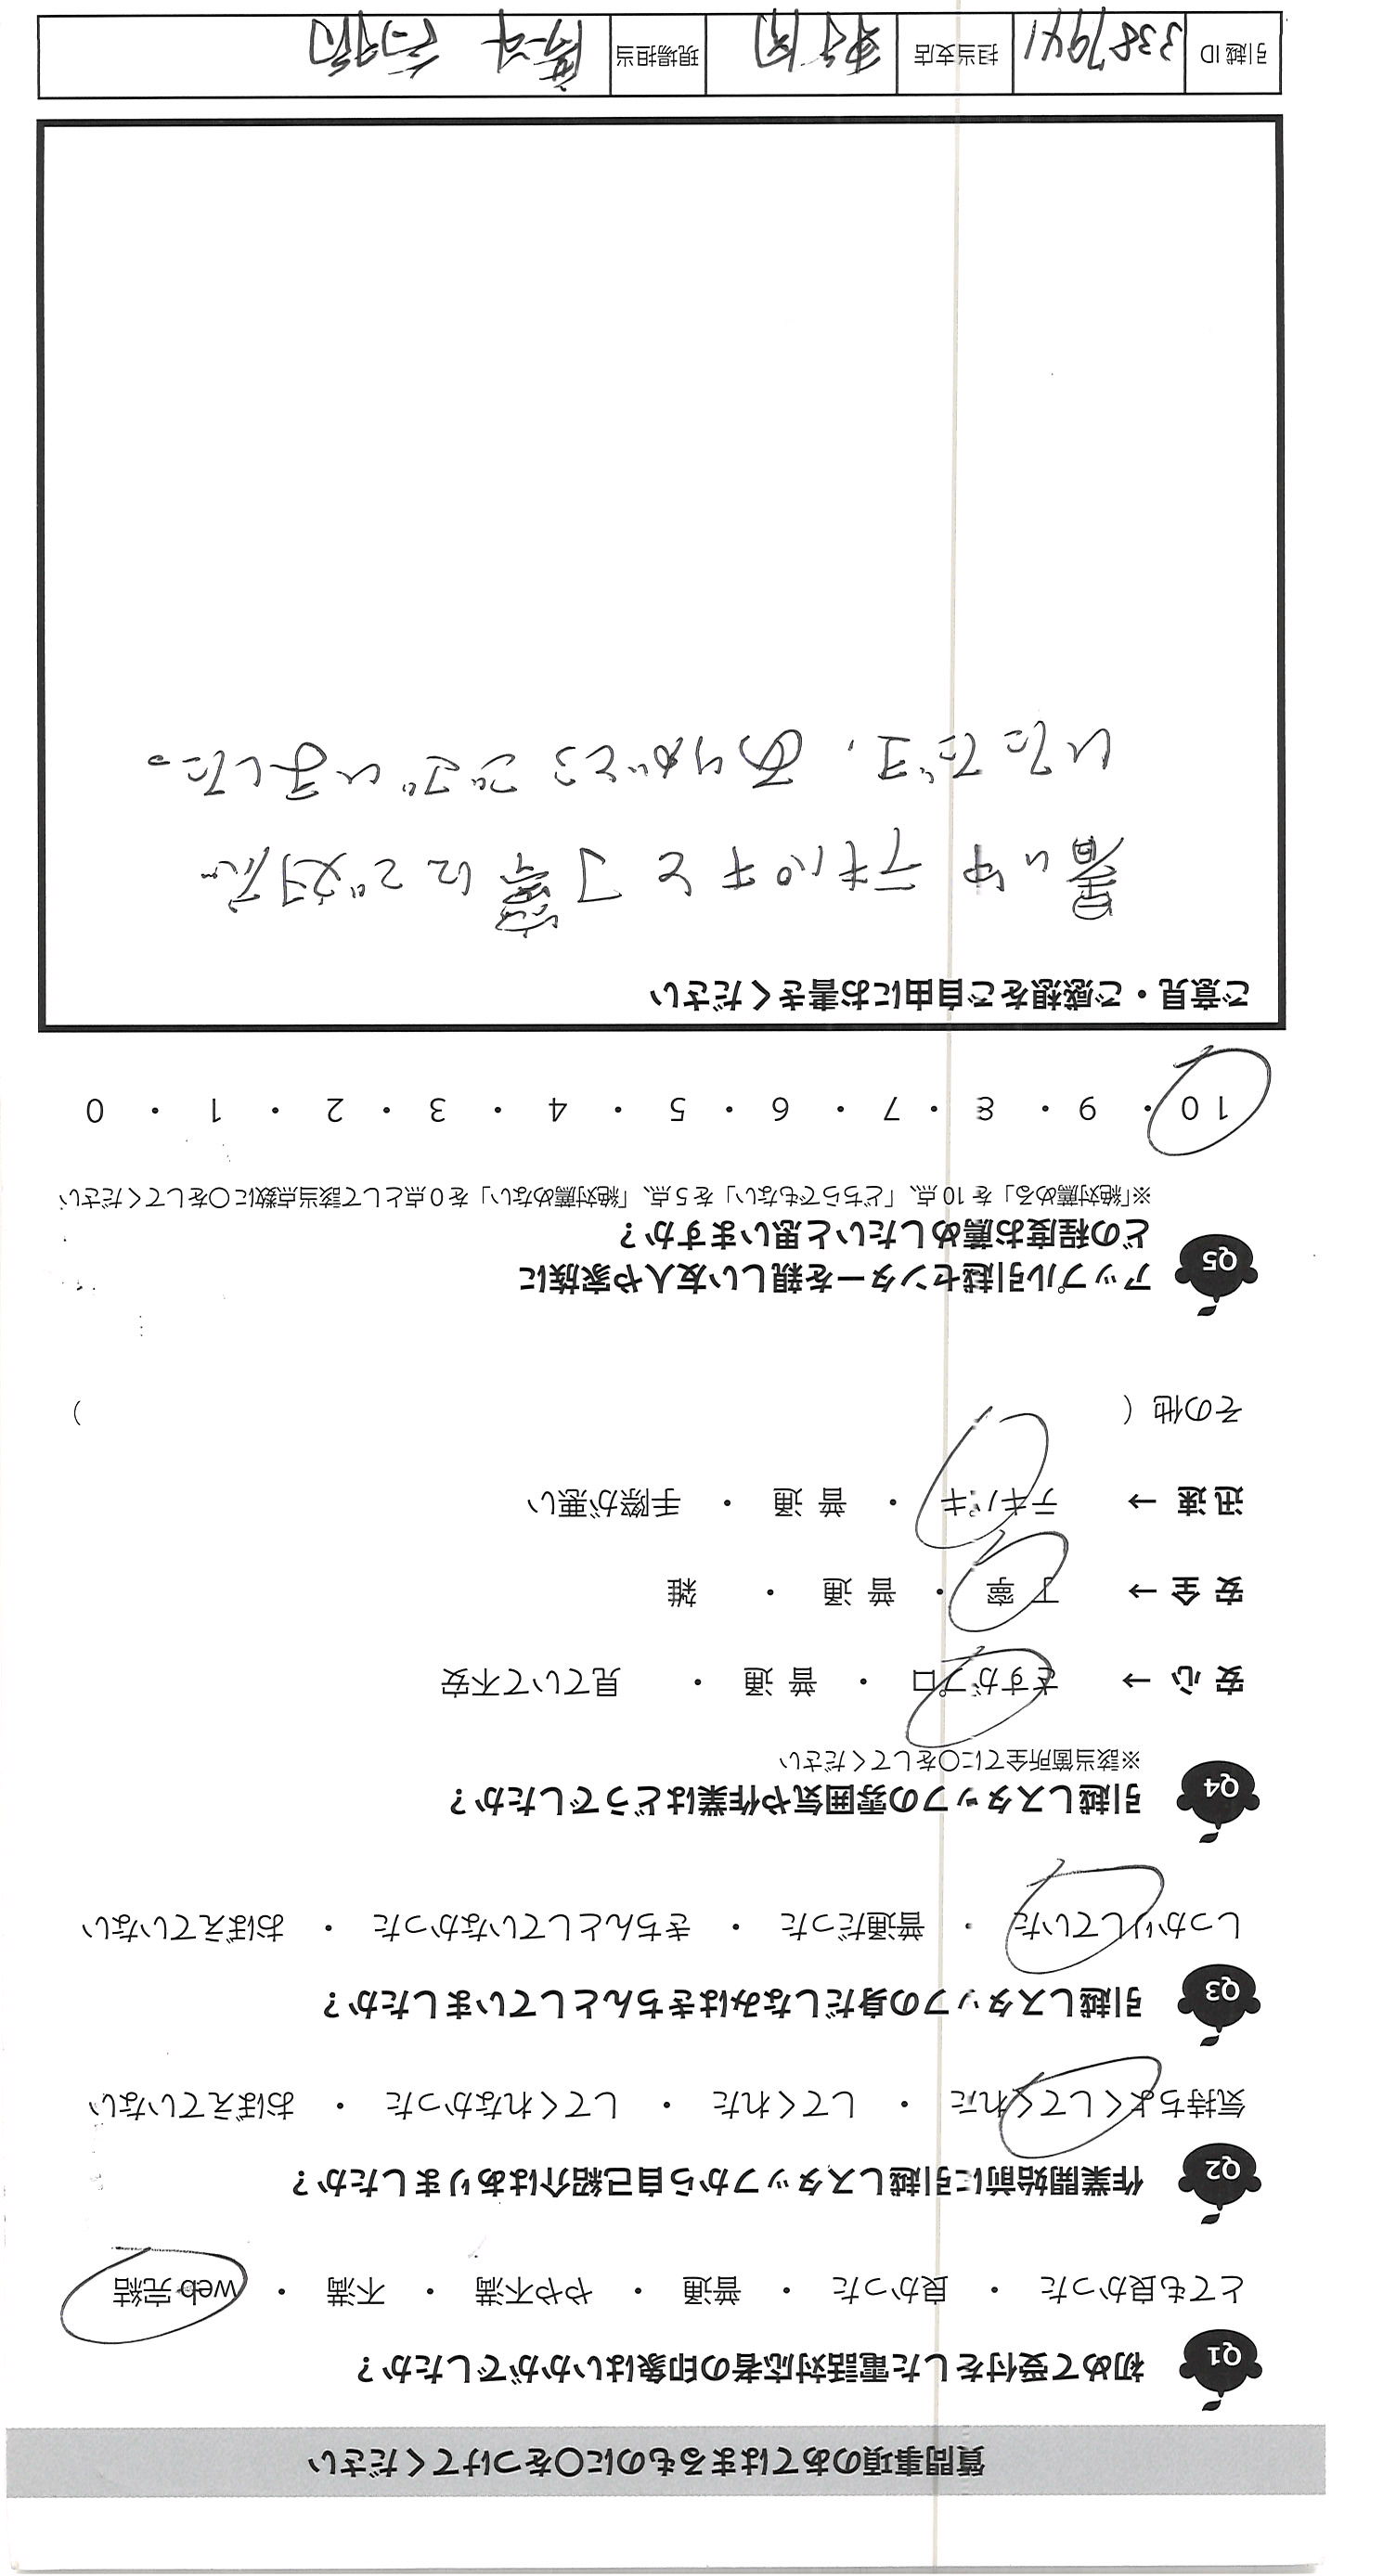 質問事項のあてはまるものに○をつけてください
Q1 初めて受付をした電話対応者の印象はいかがでしたか？
とても良かった ・ 良かった ・ 普通 ・ やや不満 ・ 不満 ・ web 完結
Q2 作業開始前に引越しスタッフから自己紹介はありましたか？
気持ちよくしてくれた ・ してくれた ・ してくれなかった ・ おぼえていない
Q3 引越しスタッフの身だしなみはきちんとしていましたか？
しっかりしていた ・ 普通だった ・ きちんとしていなかった ・ おぼえていない
Q4 引越しスタッフの雰囲気や作業はどうでしたか？
※該当箇所全てに○をしてください
安 心 → さすがプロ ・ 普 通 ・ 見ていて不安
安 全 → 丁 寧 ・ 普 通 ・ 雑
迅 速 → テキパキ ・ 普 通 ・ 手際が悪い
その他 ( )
Q5 アップル引越センターを親しい友人や家族に
どの程度お薦めしたいと思いますか？
※「絶対薦める」を 10 点、「どちらでもない」を 5 点、「絶対薦めない」を 0 点として該当点数に○をしてください
10 ・ 9 ・ 8 ・ 7 ・ 6 ・ 5 ・ 4 ・ 3 ・ 2 ・ 1 ・ 0
ご意見・ご感想をご自由にお書きください
暑い中 テキパキと丁寧にご対応
いただき、ありがとうございました。
引越 ID 3387941 担当支店 現場担当